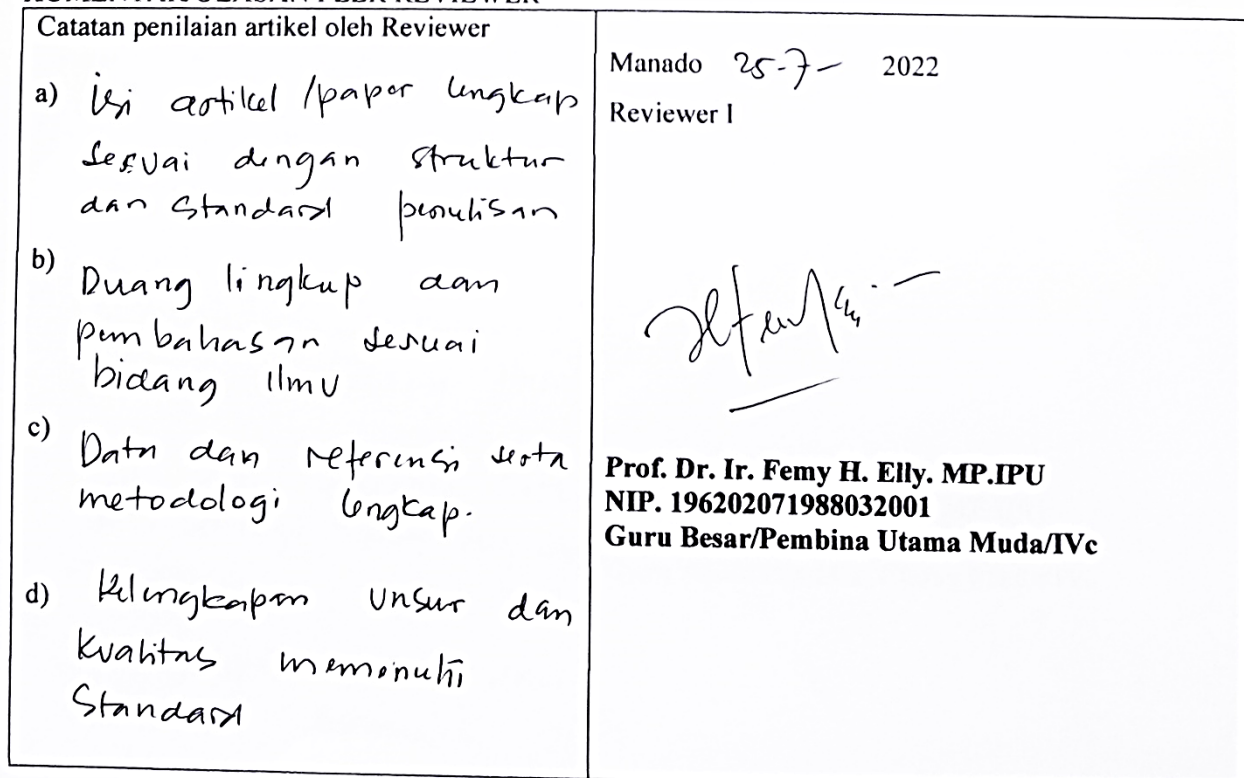 Catatan penilaian artikel oleh Reviewer
a) isi artikel /paper lengkap
sesuai dengan struktur
dan Standard penulisan
b) Ruang lingkup dan
pembahasan sesuai
bidang Ilmu
c) Data dan referensi serta
metodologi lengkap.
d) Kelengkapan Unsur dan
Kualitas memenuhi
Standard
Manado 25-7- 2022
Reviewer I
Prof. Dr. Ir. Femy H. Elly. MP.IPU
NIP. 196202071988032001
Guru Besar/Pembina Utama Muda/IVc